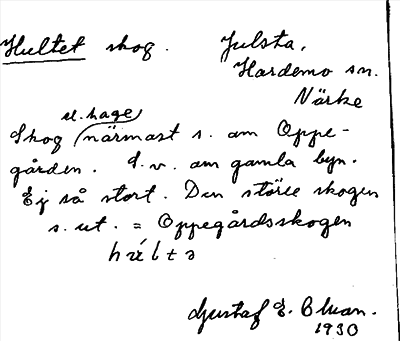 Hultet skog. Julsta,
Hardemo sn.
Närke
el. hage
Skog närmast s. om Oppe-
gården. S.v. om gamla byn.
Ej så stort. Den större skogen
s. ut. = Oppegårdsskogen
Gustaf E.
1930